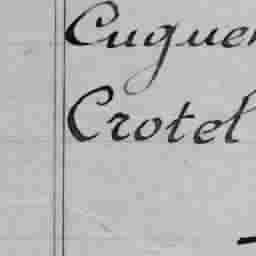 Cuguen
Crotel